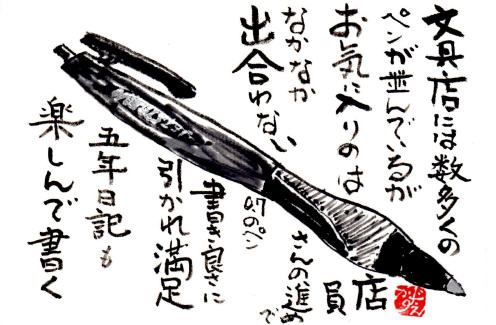 文具店には数多くの
ペンが並んでいるが
お気に入りのは
なかなか
出合わない
店
員
さんの進めで
0.7のペン
書き良さに
引かれ満足
五年日記も
楽しんで書く